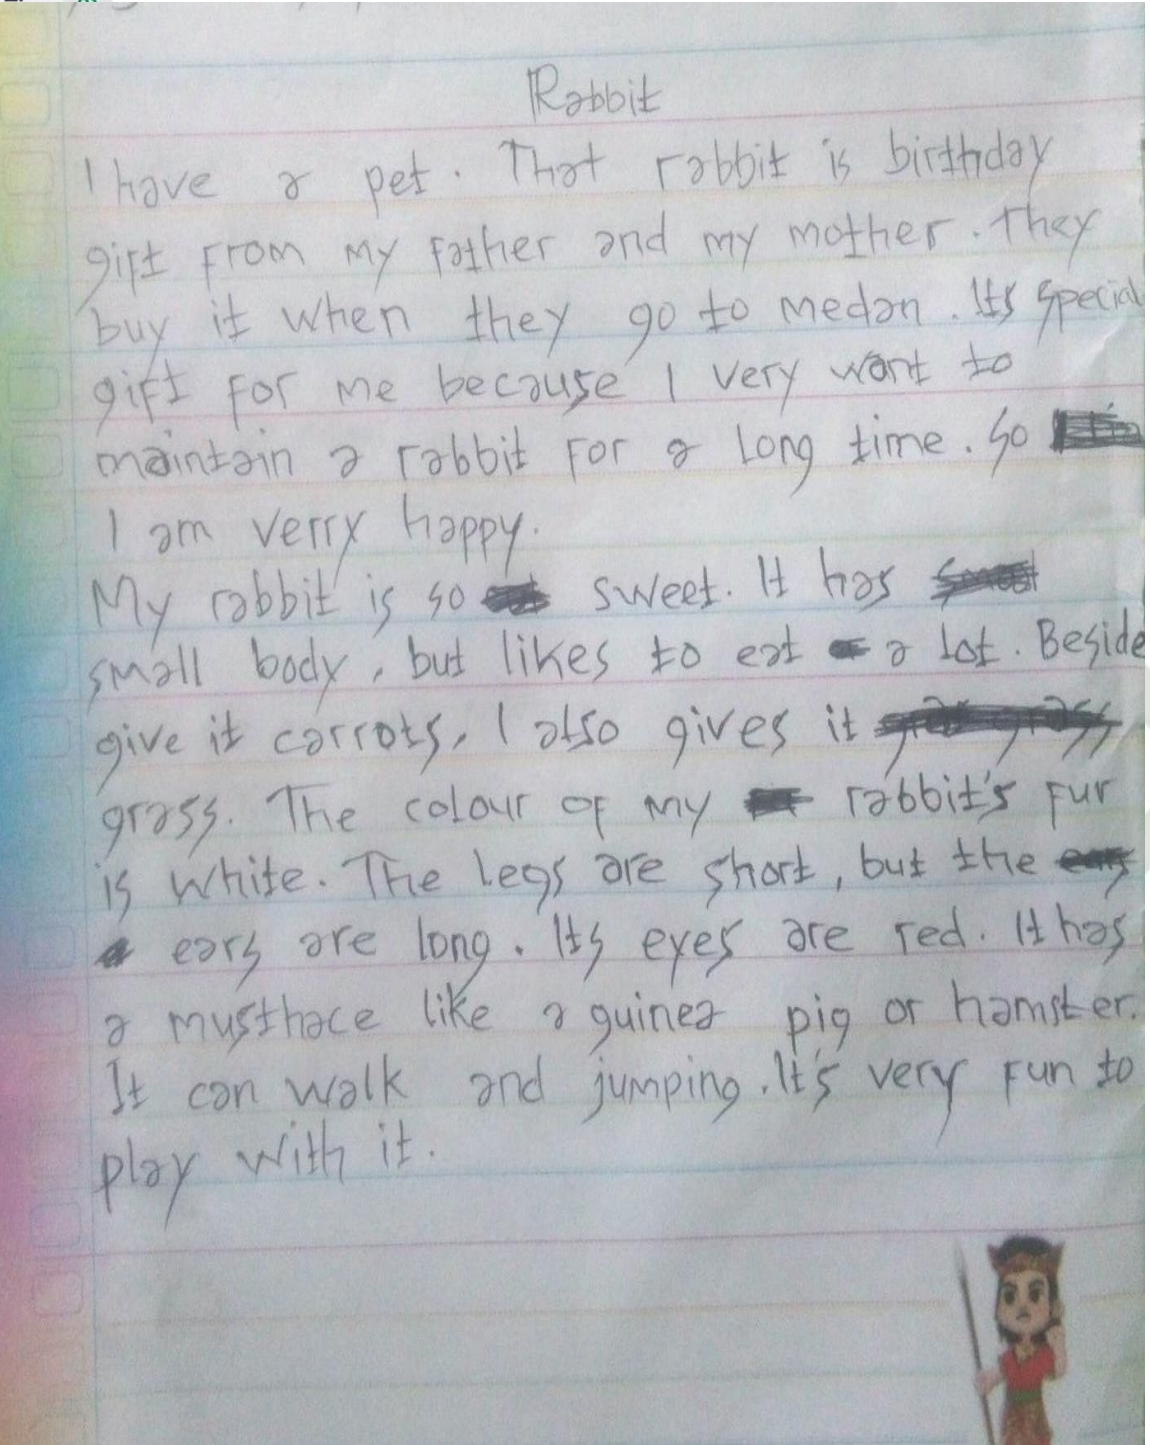 Rabbit
I have a pet. That rabbit is birthday
gift from my father and my mother. They
buy it when they go to medan. Its special
gift for me because I very want to
maintain a rabbit for a long time. So
I am verry happy.
My rabbit is so sweet. It has
small body, but likes to eat a lot. Beside
give it carrots, I also gives it
grass. The colour of my rabbit's fur
is white. The legs are short, but the
ears are long. Its eyes are red. It has
a musthace like a guinea pig or hamster.
It can walk and jumping. It's very fun to
play with it.